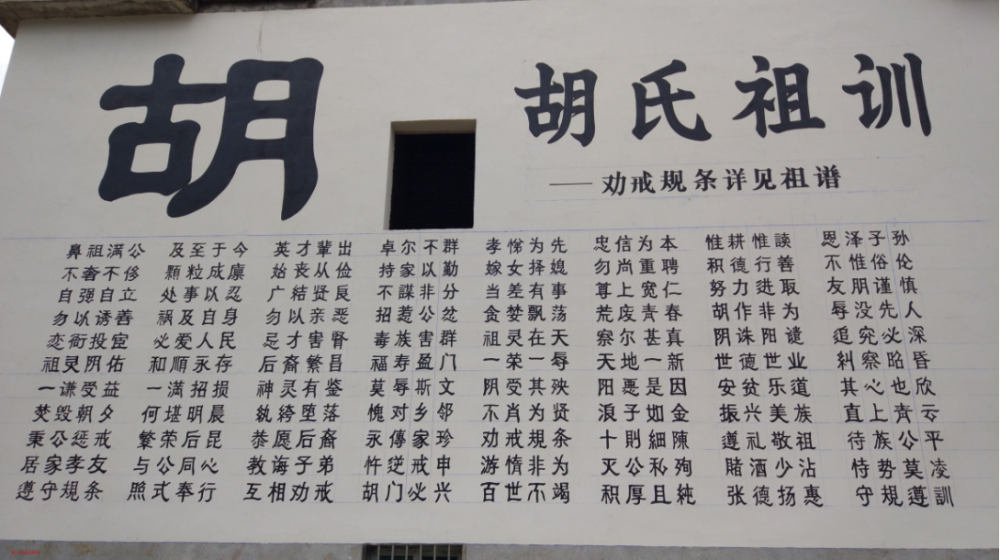 胡
胡氏祖训
——劝戒规条详见祖谱
鼻祖满公 及至于今 英才辈出 卓尔不群 孝悌为先 忠信为本 惟耕惟读 恩泽子孙
不奢不侈 颗粒成廪 始丧从俭 持家以勤 嫁女择媳 勿尚重聘 积德行善 不惟俗伦
自强自立 处事以忍 广结贤良 不謀非分 当差有事 尊上宽仁 努力进取 友朋谨慎
勿以诱善 祸及自身 勿以亲恶 招惹公忿 贪婪飘荡 荒废青春 胡作非为 辱没先人
恋衙投宦 必爱人民 足才害腎 毒族害群 祖灵在天 察尔甚真 阴诛阳譴 追究必深
祖灵阴佑 和顺永存 后裔繁昌 福寿盈门 一荣一辱 天地一新 世德世业 糾察昭昏
一谦受益 一满招损 神灵有鉴 莫辱斯文 阴受其殃 阳恶是因 安贫乐道 其心也欣
焚毁朝夕 何堪明晨 纨绔堕落 愧对乡邻 不肖为贤 浪子如金 振兴美族 直上青云
秉公惩戒 繁荣后昆 恭愿后裔 永傳家珍 劝戒規条 十則細陳 遵礼敬祖 待族公平
居家孝友 与公同心 教诲子弟 忤逆戒申 游惰非为 灭公私殉 賭酒少沾 恃势莫凌
遵守規条 照式奉行 互相劝戒 胡门必兴 百世不竭 积厚且純 张德扬惠 守規遵訓